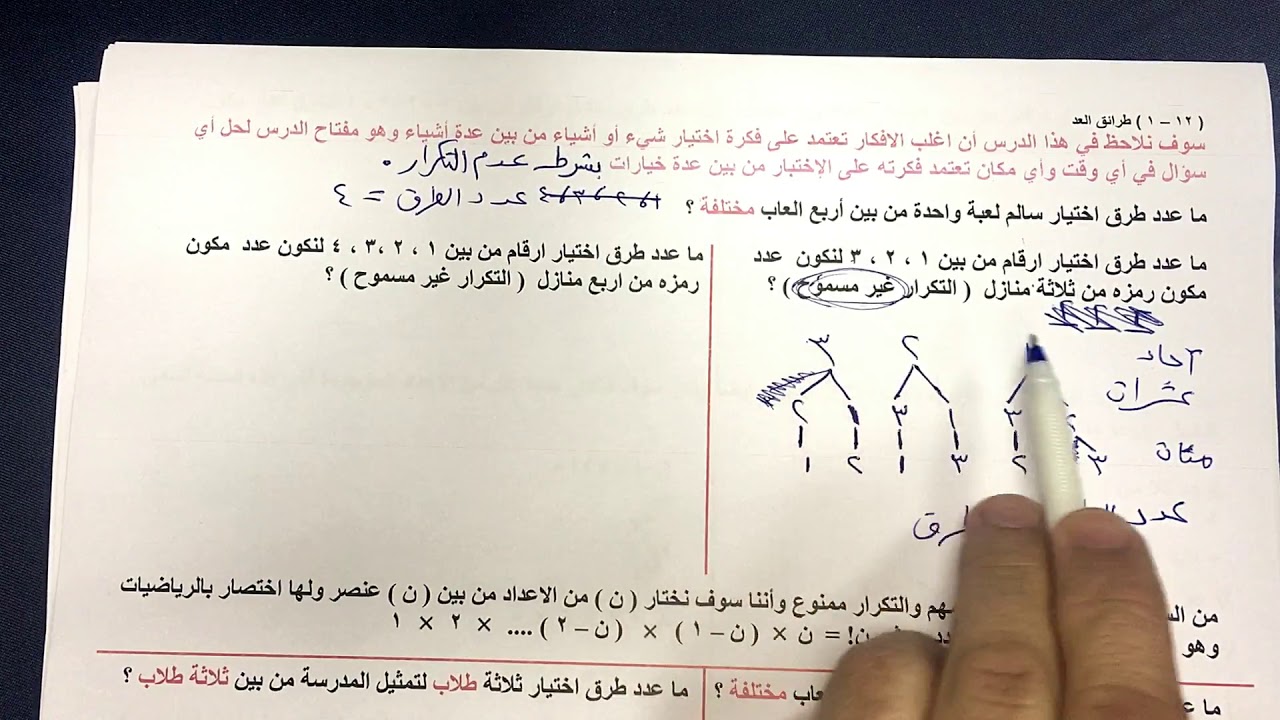 ( ١٢ – ١ ) طرائق العد
سوف نلاحظ في هذا الدرس أن اغلب الافكار تعتمد على فكرة اختيار شيء أو أشياء من بين عدة أشياء وهو مفتاح الدرس لحل أي
سؤال في أي وقت وأي مكان تعتمد فكرته على الإختبار من بين عدة خيارات بشرط عدم التكرار .
ما عدد طرق اختيار سالم لعبة واحدة من بين أربع العاب مختلفة ؟ عدد الطرق = ٤
ما عدد طرق اختيار ارقام من بين ١ ، ٢ ، ٣ لنكون عدد
مكون رمزه من ثلاثة منازل ( التكرار غير مسموح ) ؟
آحاد ٢ ٣
عشرات ٣ ١ ٣ ١ ٢
مئات ٣ ٢ ٣ ١ ٢ ١
عدد
ما عدد طرق اختيار ارقام من بين ١ ، ٢ ،٣ ، ٤ لنكون عدد مكون
رمزه من اربع منازل ( التكرار غير مسموح ) ؟
من والتكرار ممنوع وأننا سوف نختار ( ن ) من الاعداد من بين ( ن ) عنصر ولها اختصار بالرياضيات
وهو ن! = ن × ( ن – ١ ) × ( ن – ٢ ) .... × ٢ × ١
ما مختلفة ؟
ما عدد طرق اختيار ثلاثة طلاب لتمثيل المدرسة من بين ثلاثة طلاب ؟